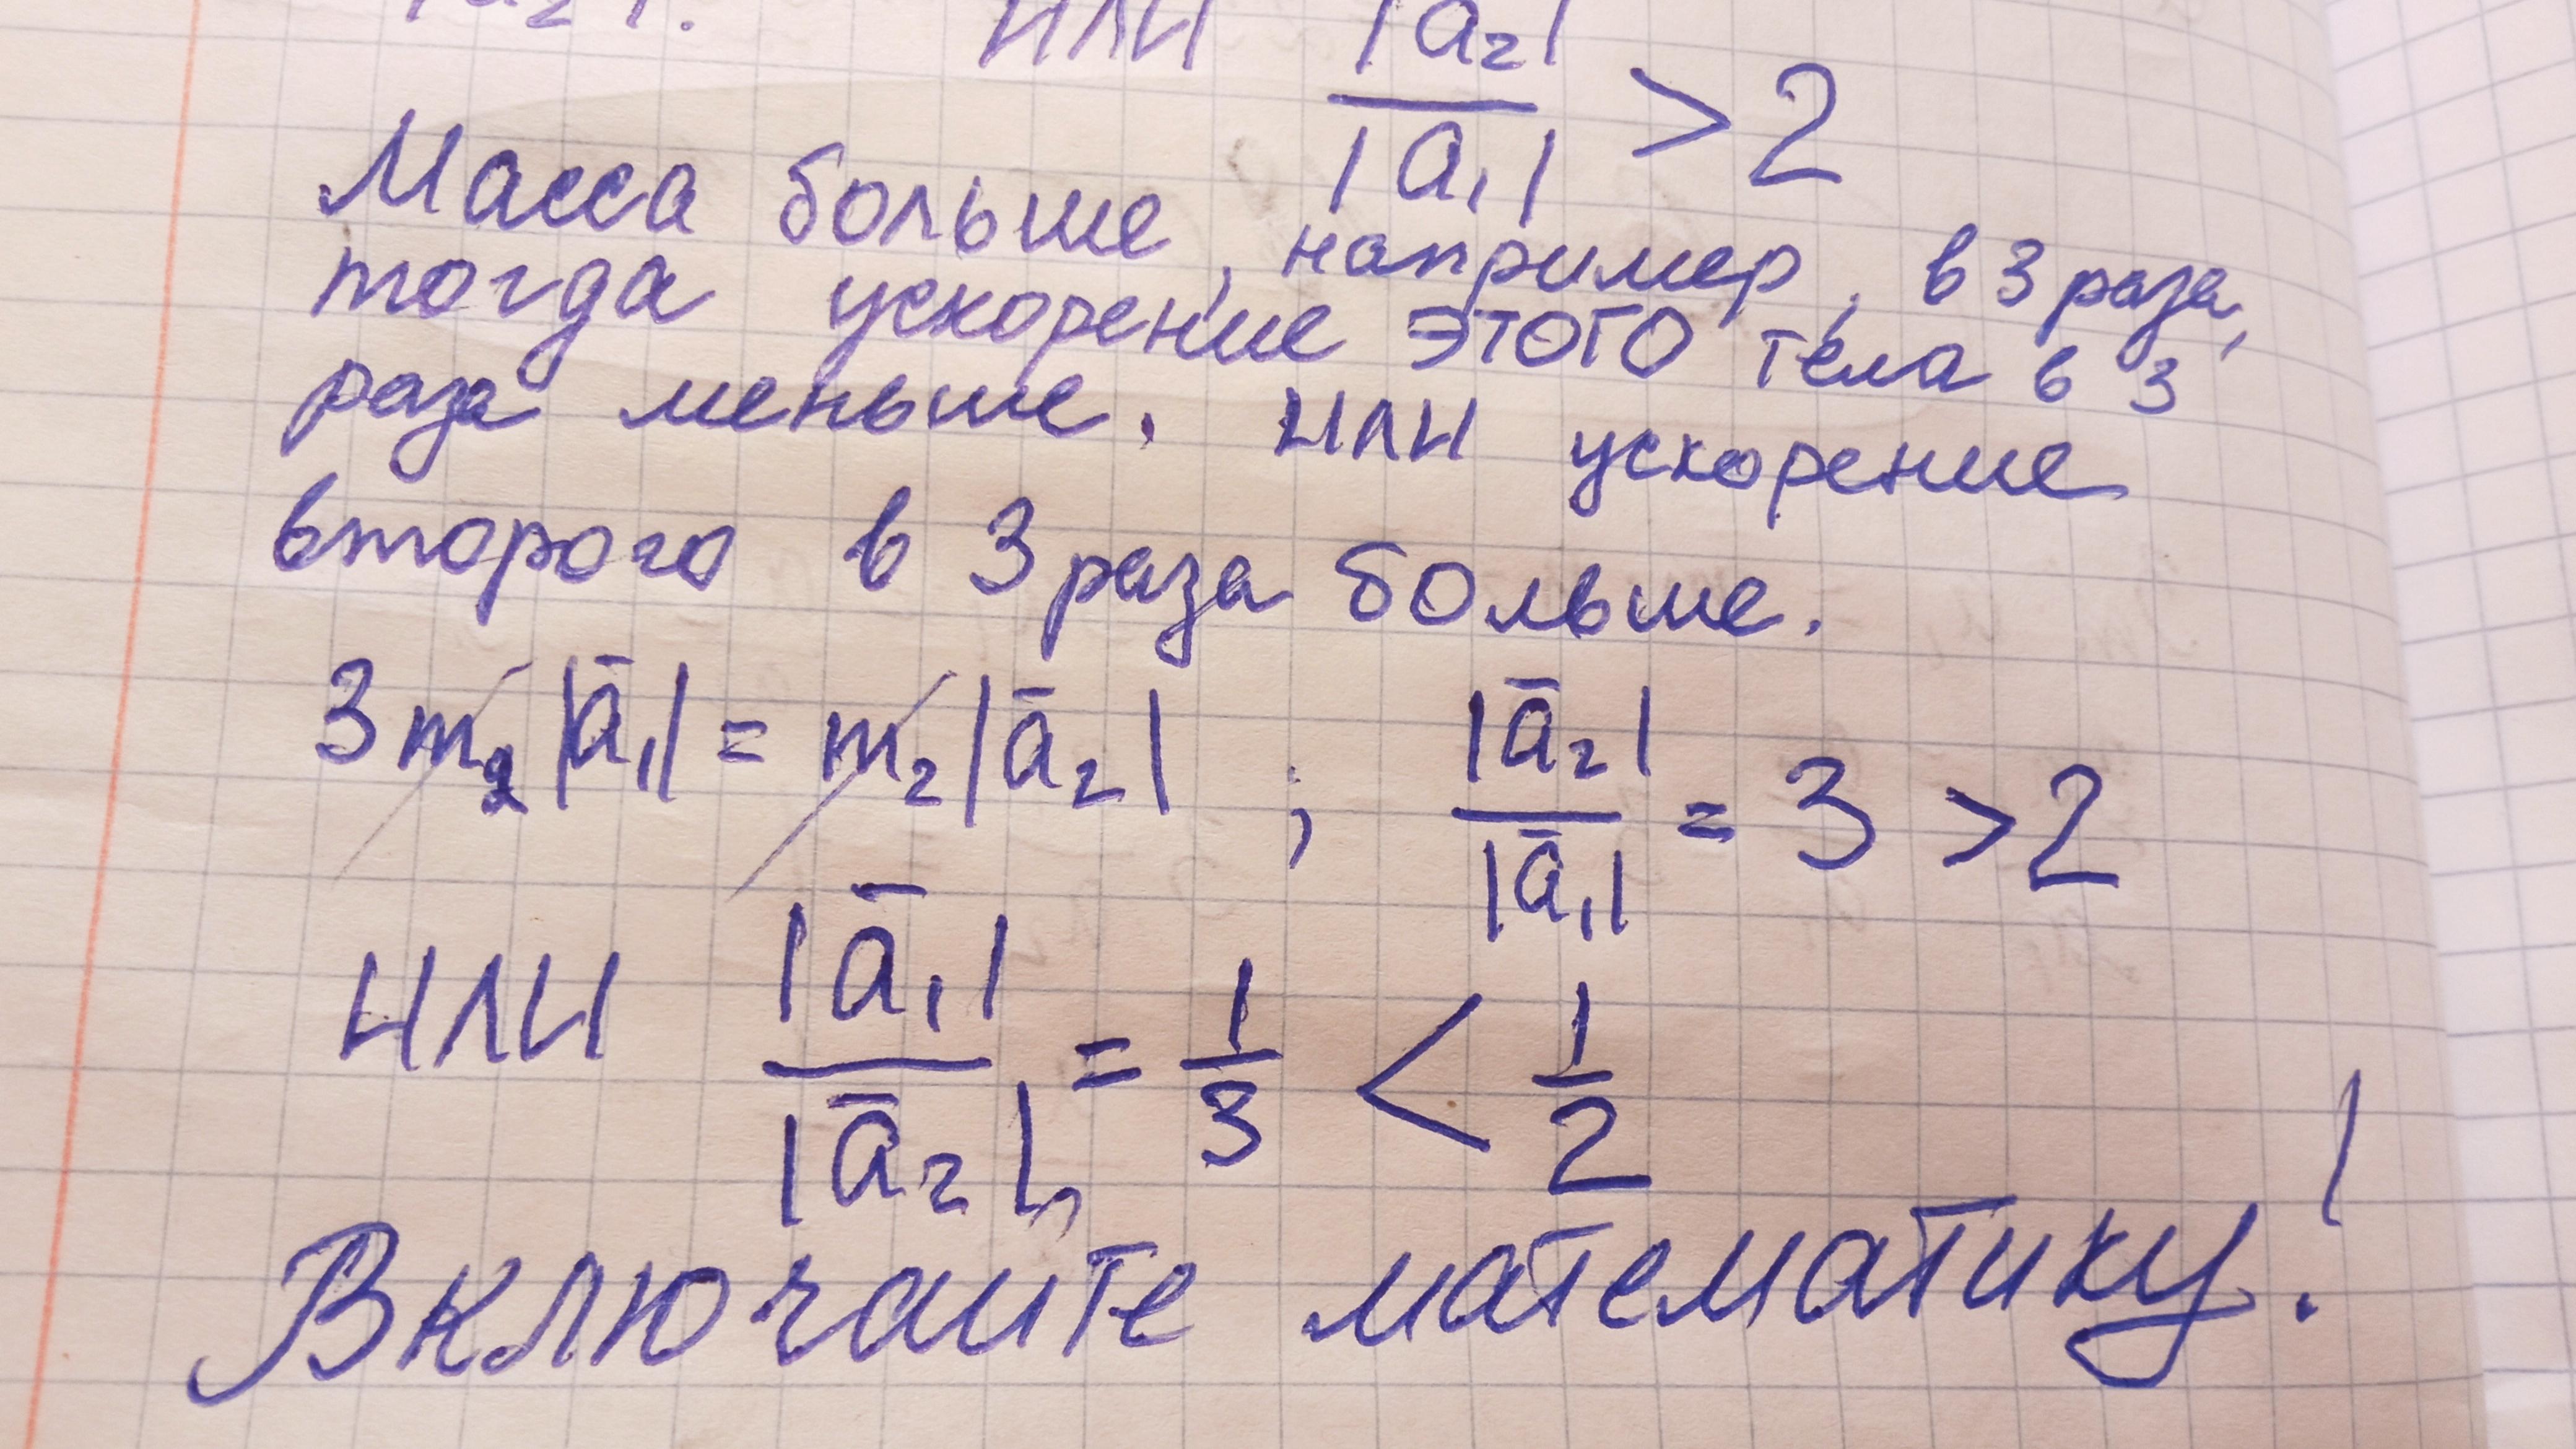 или |a₂| / |a₁| > 2
Масса больше, например, в 3 раза,
тогда ускорение этого тела в 3
раза меньше. или ускорение
второго в 3 раза больше.
3m₂|ā₁| = m₂|ā₂| ; |ā₂| / |ā₁| = 3 > 2
или |ā₁| / |ā₂| = 1/3 < 1/2
Включайте математику!